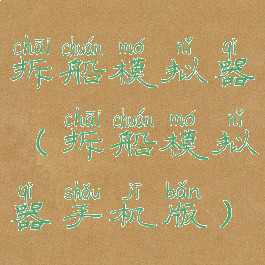 chāi chuán mó nǐ qì
拆船模拟器
chāi chuán mó nǐ
（拆船模拟
qì shǒu jī bǎn
器手机版）